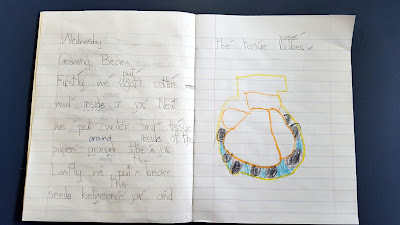 Wednesday
Growing Beans
put
Firstly we cotton
wool inside a jar Next
we put water and tissue
around inside of the
paper around the a jar
the
Lastly we put bean
the
seeds between jar and
paper
the tissue